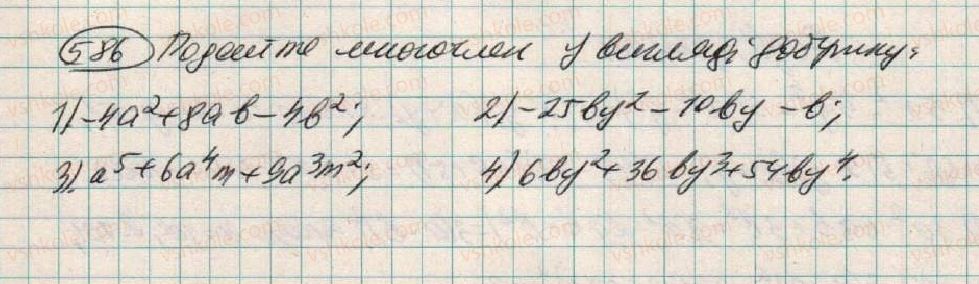 586 Подайте многочлен у вигляді добутку:
1) -4a²+8ab-4b²; 2) -25by²-10by-b;
3) a⁵+6a⁴m+9a³m²; 4) 6by²+36by³+54by⁴.